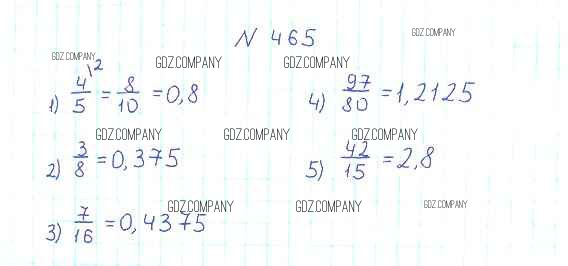 N 465
GDZ.COMPANY
GDZ.COMPANY GDZ.COMPANY GDZ.COMPANY
1) 4/5 \2 = 8/10 = 0,8
4) 97/80 = 1,2125
GDZ.COMPANY GDZ.COMPANY GDZ.COMPANY
2) 3/8 = 0,375
5) 42/15 = 2,8
GDZ.COMPANY GDZ.COMPANY GDZ.COMPANY
3) 7/16 = 0,4375